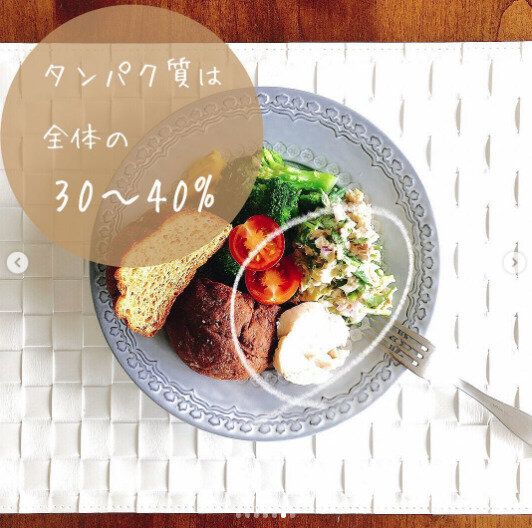 タンパク質は
全体の
30～40%